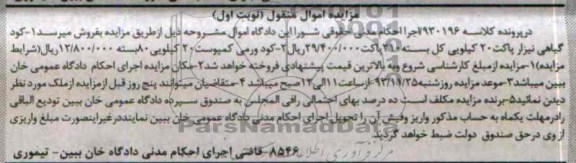 مزایده اموال منقول (نوبت اول)
درپرونده کلاسه ۹۳۰۱۹۶اجرا احکام مدنی حقوقی شورا این دادگاه اموال مشروحه ذیل ازطریق مزایده بفروش میرسد۱-کود
گیاهی نیزار پاکت۲۰ کیلویی کل بسته ۲۱۰پاکت۲۹/۴۰۰/۰۰۰ریال۲-کود ورمی کمپوست۲۰ کیلویی ۸۰بسته ۱۲/۸۰۰/۰۰۰ریال(شرایط
مزایده)۱-مزایده ازمبلغ کارشناسی شروع وبه بالاترین قیمت پیشنهادی فروخته خواهد شد۲-مکان مزایده اجرای احکام دادگاه عمومی خان
ببین میباشد۳-موعد مزایده روزشنبه۹۳/۱۱/۲۵ ازساعت۱۱الی۱۲صبح میباشد ۴-متقاضیان میتوانند پنج روز قبل ازمزایده ازملک مورد نظر
دیدن نمائید۵-برنده مزایده مکلف است ده درصد بهای احتمالی رافی المجلس به صندوق سپرده دادگاه عمومی خان ببین تودیع الباقی
رادرمهلت یکماه به حساب مذکور واریز وفیش آن را تحویل اجرای احکام مدنی دادگاه عمومی خان ببین نماینددرغیراینصورت مبلغ واریزی
از وی درحق صندوق دولت ضبط خواهد گردید
۸۵۴۶ قاضی اجرای احکام مدنی دادگاه خان ببین- تیموری
ParsNamadData